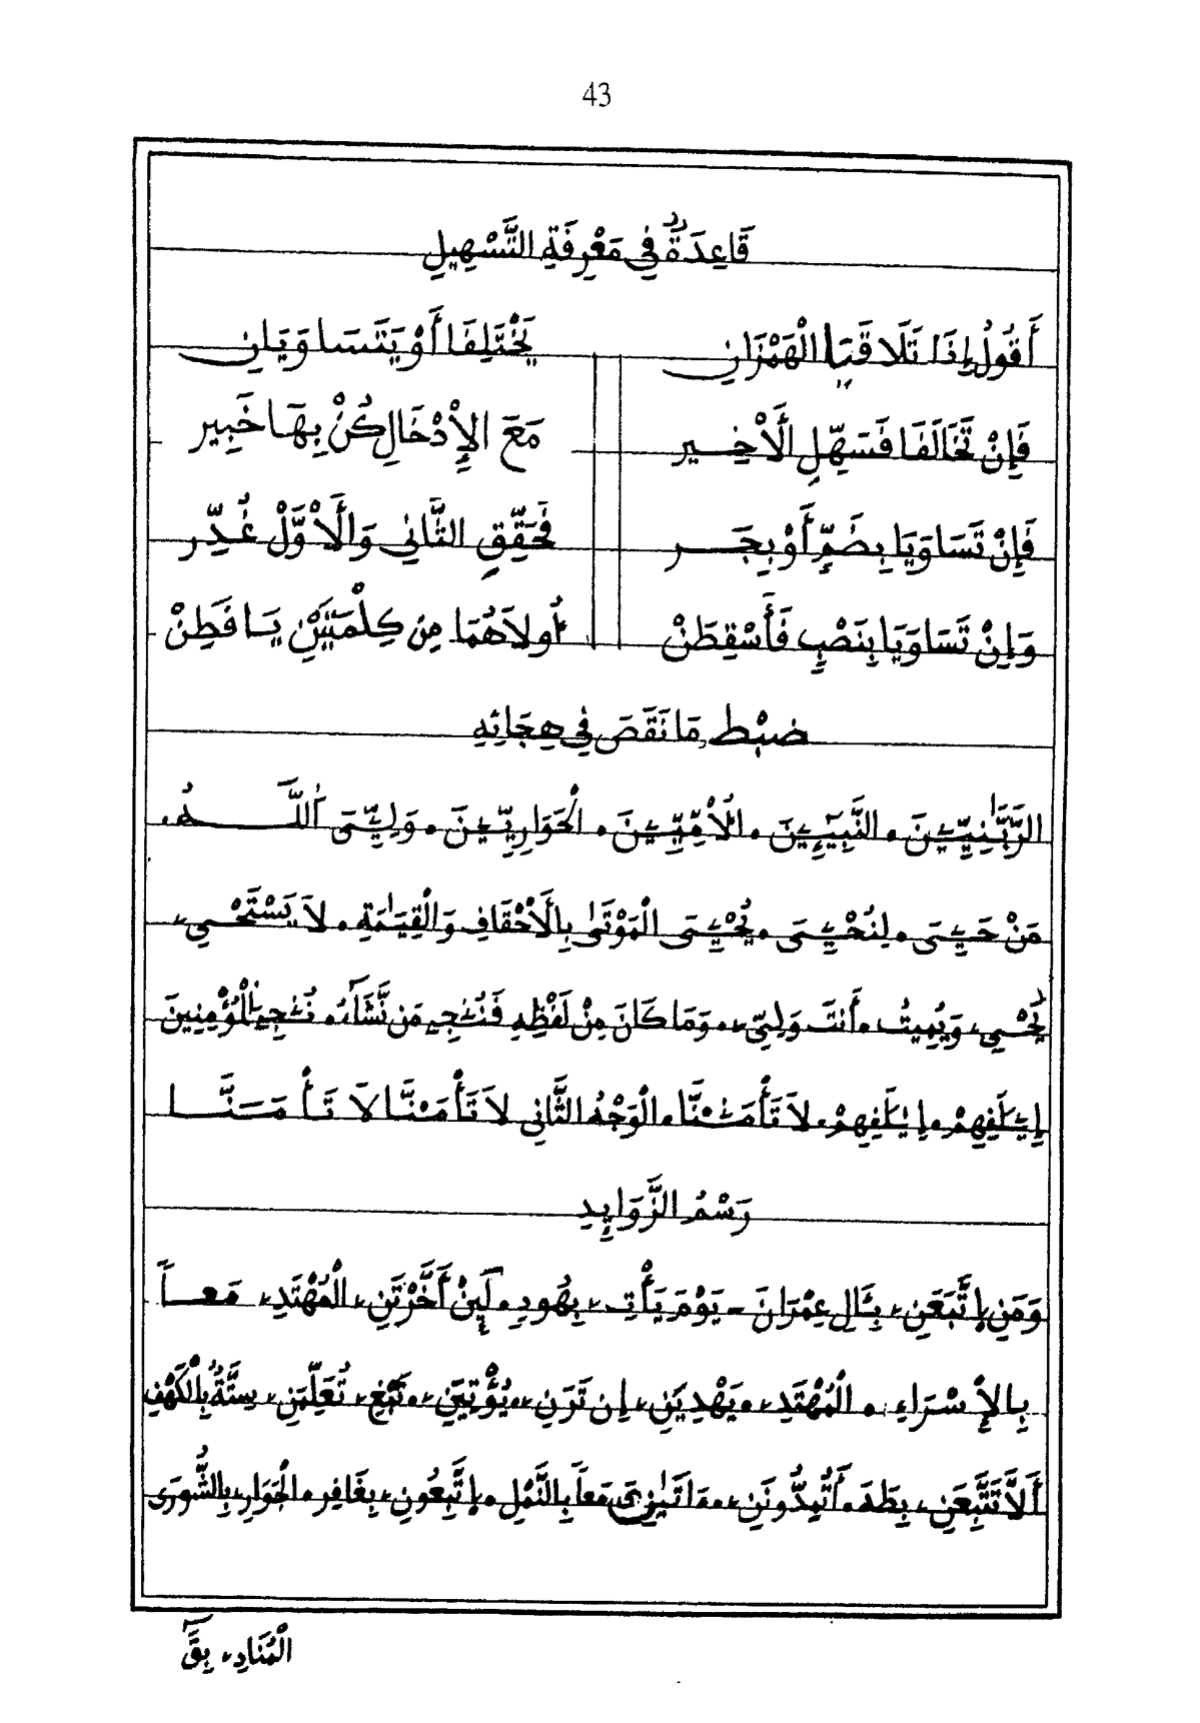 43
قَاعِدَةٌ فِي مَعْرِفَةِ التَّسْهِيلِ
أَقُولُ إِذَا تَلَاقَيَا الْهَمْزَانِ يَخْتَلِفَا أَوْ يَتَسَاوَيَانِ
فَإِنْ تَخَالَفَا فَسَهِّلِ الَأْخِيرِ مَعَ الإِدْخَالِ كُنْ بِهَا خَبِيرِ
فَإِنْ تَسَاوَيَا بِضَمٍّ أَوْ بِجَرِ فَحَقِّقِ الثَّانِي وَالَأْوَّلْ غُدِّرِ
وَإِنْ تَسَاوَيَا بِنَصْبٍ فَأَسْقِطَنْ أُولَاهُمَا مِن كِلْمَتَيْنِ يَا فَطِنْ
ضبْط مَا نَقَصَ فِي هِجَائِهِ
الرَّبَّٰنِيِّينَ . النَّبِيٓـِٕينَ . الُأْمِّيِّينَ . الْحَوَارِيِّينَ . وَلِـِّۧيَ اَ۬للَّهُ .
مَنْ حَيِيَ . لِنُحْيِيَ . يُحْيِيَ الْمَوْتَىٰ بِالَأْحْقَافِ وَالْقِيَٰمَةِ . لَا يَسْتَحْيِے
يُحْيِے وَيُمِيتُ . أَنتَ وَلِيِّے . وَمَا كَانَ مِنْ لَفْظِهِ فَنُۨجِے مَن نَّشَآءُ . نُۨجِے اِ۬لْمُؤْمِنِينَ
إِۦلَٰفِهِمْ . إِيلَٰفِهِمْ . لَا تَأْمَ۬نَّا . الْوَجْهُ الثَّانِي لَا تَأْمَنْنَّا لَا تَأْمَنَّا
رَسْمُ الزَّوَايِدِ
وَمَنِ إِتَّبَعَنِۦ بِـَٔالِ عِمْرَانَ - يَوْمَ يَأْتِۦ بِهُودِ . لَئِنْ أَخَّرْتَنِۦ الْمُهْتَدِۦ مَعاً
بِالإِسْرَاءِ . الْمُهْتَدِۦ . يَهْدِيَنِۦ إِن تَرَنِۦ . يُؤْتِيَنِۦ . نَبْغِۦ تُعَلِّمَنِۦ سِتَّةٌ بِالْكَهْفِ
أَلَّا تَتَّبِعَنِۦ بِطَهَ . أَتُمِدُّونَنِۦ . ءَاتَىٰنِۦَ مَعاً بِالنَّمْلِ . إِتَّبِعُونِۦ بِغَافِرِ . الْجَوَارِۦ بِالشُّورَى
الْمُنَادِۦ بِقَٓ